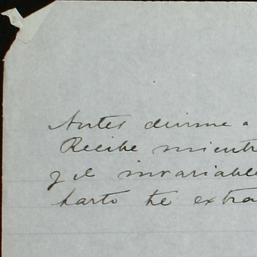 Antes dirme a
Recibe mientr
y el invariable
harto te extra